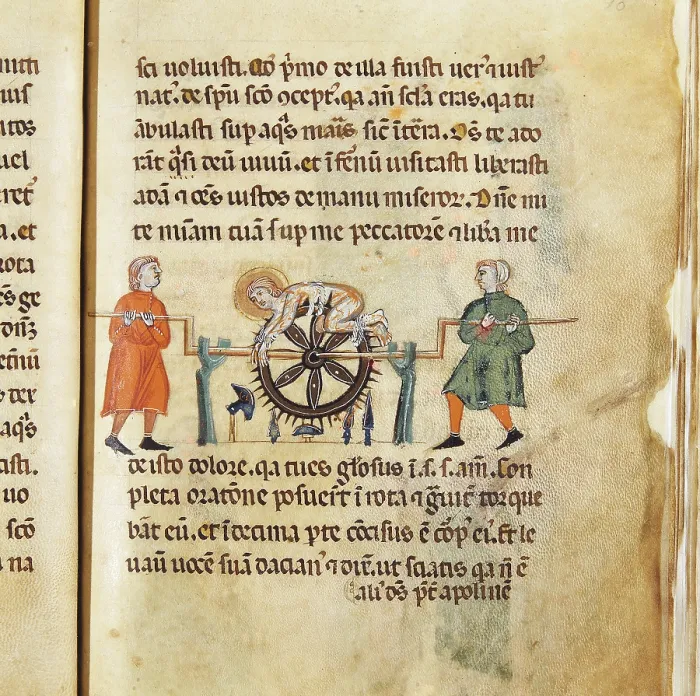 uis
uel
a. et
rota
aq̄s
uo
sc̄o
na
sci uoluisti. Qd p̄mo de illa fuisti uer' ⁊ iust'
nat'. de sp̄u sc̄o ꝯcept'. qa an̄ scl̄a eras. qa tu
ābulasti sup aq̄s maīs sic̄ ī tēra. Oēs te ado
rāt q̄si deū uiuū. et īfēnū uisitasti liberasti
adā ⁊ oēs iustos de manu miseroꝝ. Dn̄e mi
te miām tuā sup me peccatorē ⁊ liba me
de isto dolore. qa tu es gl̄osus ī. s. s. am̄. Con
pleta oratōne posuer̄t ī rota ⁊ ḡuit̄ torque
bāt eū. et ī decima pte cōcisus ē cōp' ei'. Et le
uaū uocē suā dacian' ⁊ dix̄. ut sciatis qa n̄ ē
ali' d̄s p̄t apolinē